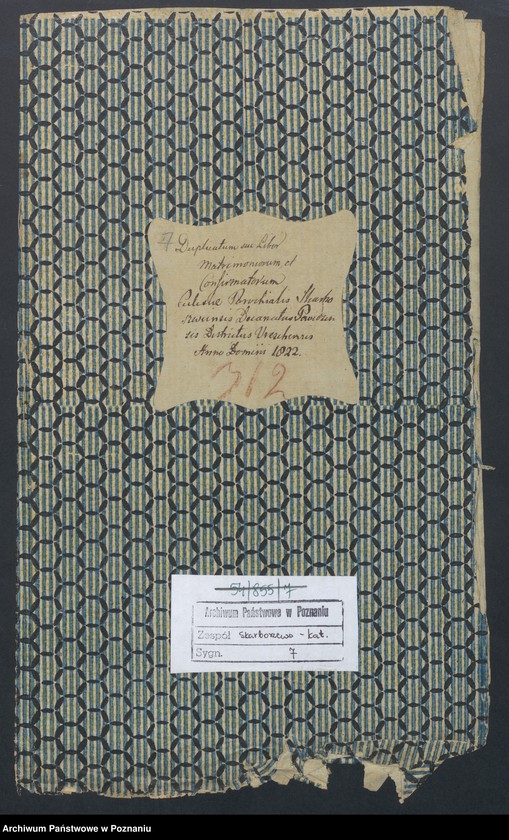 7 Duplicatum sui Liber
Matrimoniorum et
Confirmatorum
Ecclesiae Parochialis Skarbo
szewensis Decanatus
sis Districtus Vreschensis
Anno Domini 1822
312
54/855/7
Archiwum Państwowe w Poznaniu
Zespół Skarboszewo - kat.
Sygn. 7
Archiwum Państwowe w Poznaniu
Archiwum Państwowe w Poznaniu